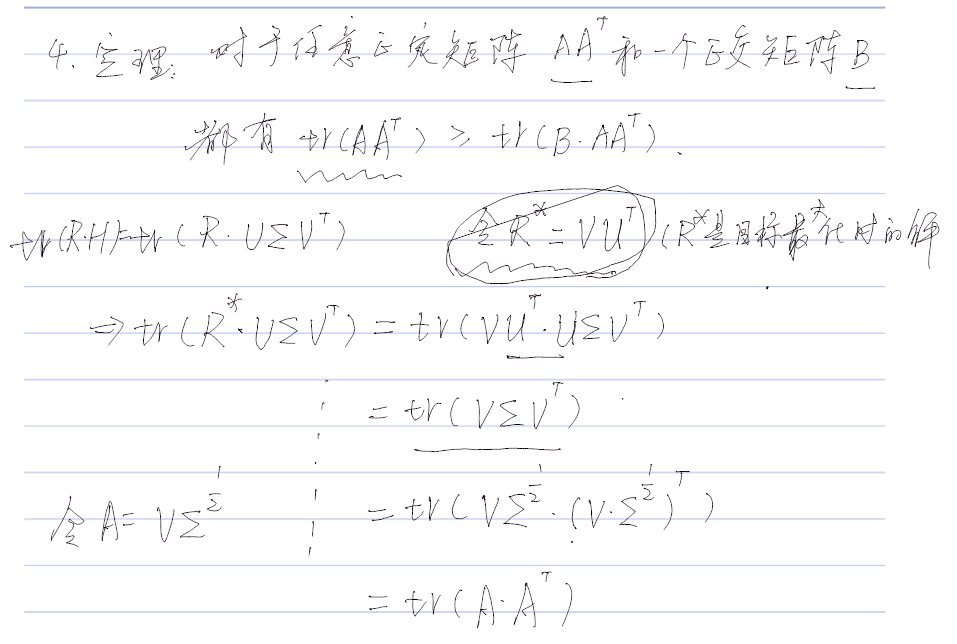 4. 定理: 对于任意正定矩阵 AAᵀ 和一个正交矩阵 B
都有 tr(AAᵀ) > tr(B·AAᵀ).
tr(R·H)=tr(R·UΣVᵀ) 令 R* = VUᵀ (R*是目标最大化时的解
⇒ tr(R*·UΣVᵀ) = tr(VUᵀ·UΣVᵀ)
= tr(VΣVᵀ)
令 A = VΣ^½ = tr(VΣ^½·(V·Σ^½)ᵀ)
= tr(A·Aᵀ)